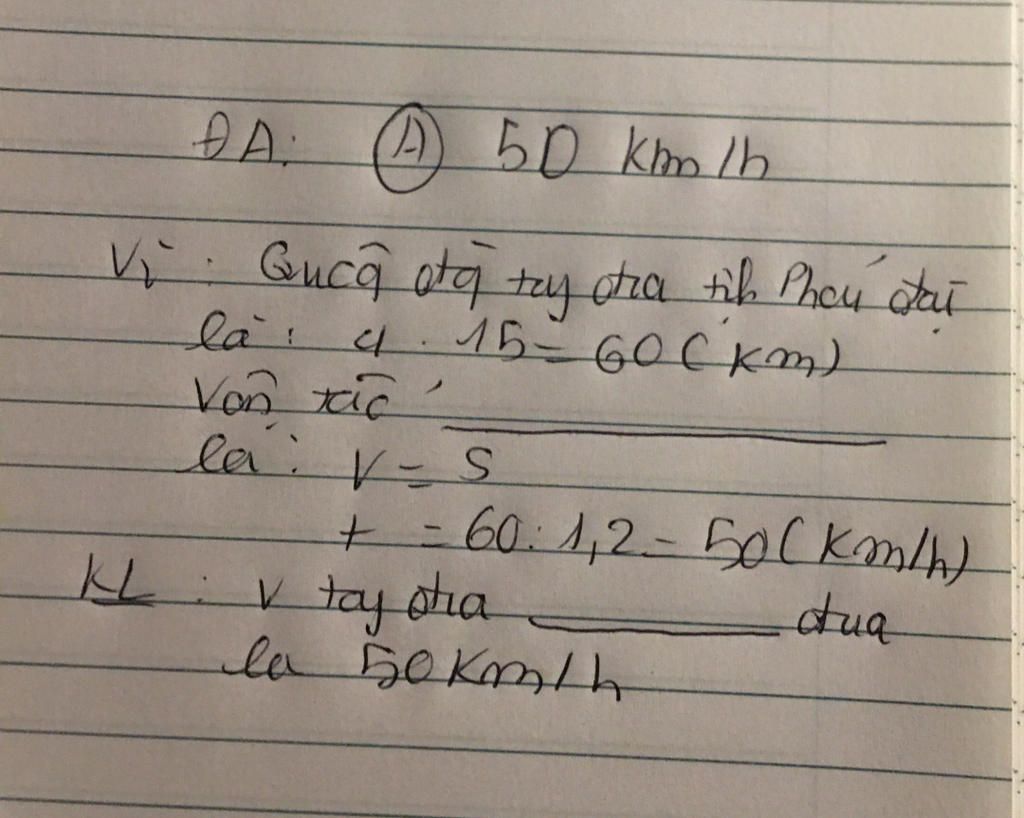 ĐA: Ⓐ 50 km/h
Vì: Qucq̄ đtq̄ tay đua tih Phải đai
là: 4 . 15 = 60 (km)
Vận tốc
là: V = S
t = 60 : 1,2 = 50 (km/h)
KL: V tay đua đua
la 50 km/h